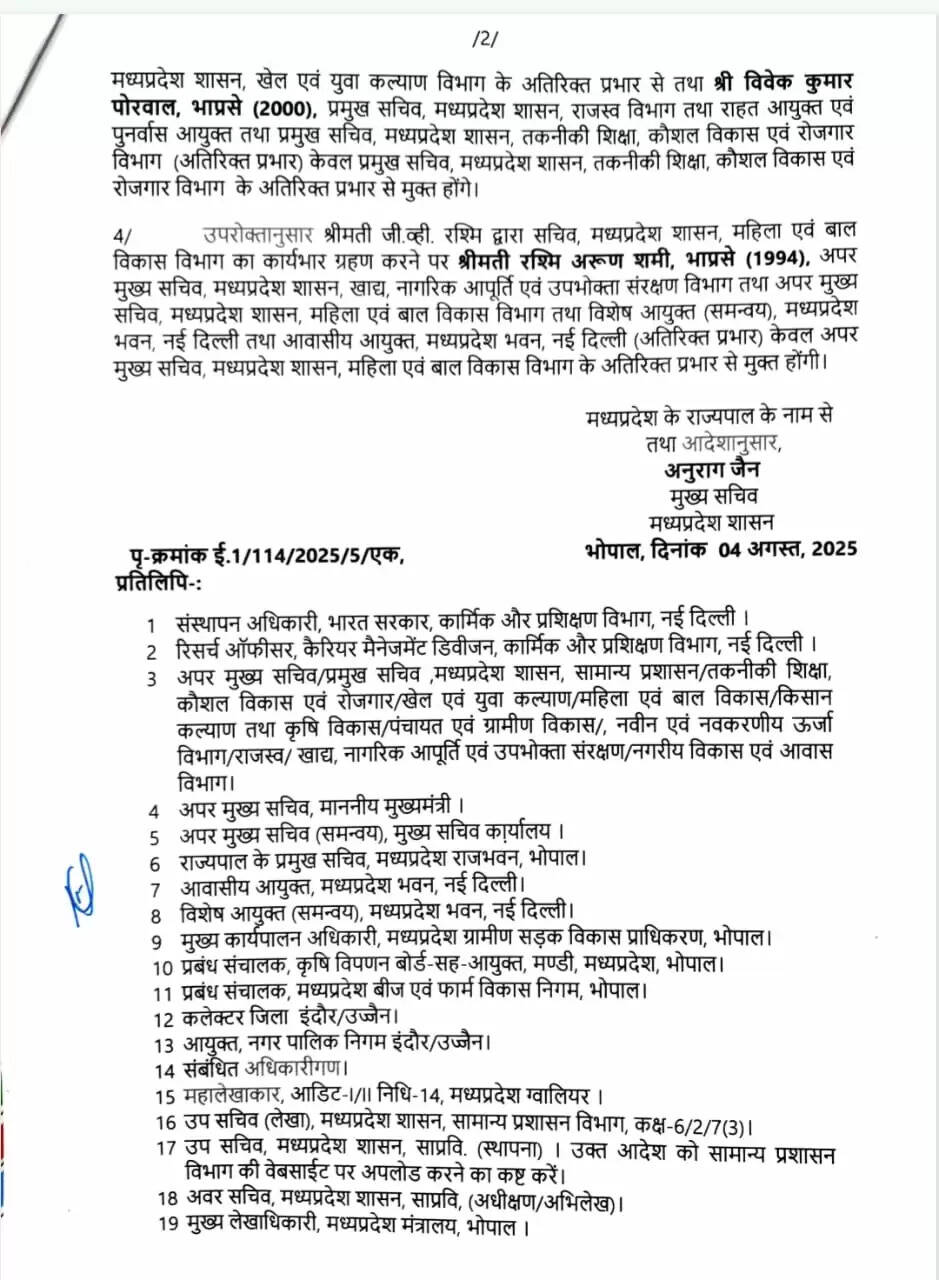 /2/
मध्यप्रदेश शासन, खेल एवं युवा कल्याण विभाग के अतिरिक्त प्रभार से तथा श्री विवेक कुमार
पोरवाल, भाप्रसे (2000), प्रमुख सचिव, मध्यप्रदेश शासन, राजस्व विभाग तथा राहत आयुक्त एवं
पुनर्वास आयुक्त तथा प्रमुख सचिव, मध्यप्रदेश शासन, तकनीकी शिक्षा, कौशल विकास एवं रोजगार
विभाग (अतिरिक्त प्रभार) केवल प्रमुख सचिव, मध्यप्रदेश शासन, तकनीकी शिक्षा, कौशल विकास एवं
रोजगार विभाग के अतिरिक्त प्रभार से मुक्त होंगे।
4/ उपरोक्तानुसार श्रीमती जी.व्ही. रश्मि द्वारा सचिव, मध्यप्रदेश शासन, महिला एवं बाल
विकास विभाग का कार्यभार ग्रहण करने पर श्रीमती रश्मि अरूण शमी, भाप्रसे (1994), अपर
मुख्य सचिव, मध्यप्रदेश शासन, खाद्य, नागरिक आपूर्ति एवं उपभोक्ता संरक्षण विभाग तथा अपर मुख्य
सचिव, मध्यप्रदेश शासन, महिला एवं बाल विकास विभाग तथा विशेष आयुक्त (समन्वय), मध्यप्रदेश
भवन, नई दिल्ली तथा आवासीय आयुक्त, मध्यप्रदेश भवन, नई दिल्ली (अतिरिक्त प्रभार) केवल अपर
मुख्य सचिव, मध्यप्रदेश शासन, महिला एवं बाल विकास विभाग के अतिरिक्त प्रभार से मुक्त होंगी।
मध्यप्रदेश के राज्यपाल के नाम से
तथा आदेशानुसार,
अनुराग जैन
मुख्य सचिव
मध्यप्रदेश शासन
पृ-क्रमांक ई.1/114/2025/5/एक, भोपाल, दिनांक 04 अगस्त, 2025
प्रतिलिपि-:
1 संस्थापन अधिकारी, भारत सरकार, कार्मिक और प्रशिक्षण विभाग, नई दिल्ली ।
2 रिसर्च ऑफीसर, कैरियर मैनेजमेंट डिवीजन, कार्मिक और प्रशिक्षण विभाग, नई दिल्ली ।
3 अपर मुख्य सचिव/प्रमुख सचिव ,मध्यप्रदेश शासन, सामान्य प्रशासन/तकनीकी शिक्षा,
कौशल विकास एवं रोजगार/खेल एवं युवा कल्याण/महिला एवं बाल विकास/किसान
कल्याण तथा कृषि विकास/पंचायत एवं ग्रामीण विकास/, नवीन एवं नवकरणीय ऊर्जा
विभाग/राजस्व/ खाद्य, नागरिक आपूर्ति एवं उपभोक्ता संरक्षण/नगरीय विकास एवं आवास
विभाग।
4 अपर मुख्य सचिव, माननीय मुख्यमंत्री ।
5 अपर मुख्य सचिव (समन्वय), मुख्य सचिव कार्यालय ।
6 राज्यपाल के प्रमुख सचिव, मध्यप्रदेश राजभवन, भोपाल।
7 आवासीय आयुक्त, मध्यप्रदेश भवन, नई दिल्ली।
8 विशेष आयुक्त (समन्वय), मध्यप्रदेश भवन, नई दिल्ली।
9 मुख्य कार्यपालन अधिकारी, मध्यप्रदेश ग्रामीण सड़क विकास प्राधिकरण, भोपाल।
10 प्रबंध संचालक, कृषि विपणन बोर्ड-सह-आयुक्त, मण्डी, मध्यप्रदेश, भोपाल।
11 प्रबंध संचालक, मध्यप्रदेश बीज एवं फार्म विकास निगम, भोपाल।
12 कलेक्टर जिला इंदौर/उज्जैन।
13 आयुक्त, नगर पालिक निगम इंदौर/उज्जैन।
14 संबंधित अधिकारीगण।
15 महालेखाकार, आडिट-I/II निधि-14, मध्यप्रदेश ग्वालियर ।
16 उप सचिव (लेखा), मध्यप्रदेश शासन, सामान्य प्रशासन विभाग, कक्ष-6/2/7(3)।
17 उप सचिव, मध्यप्रदेश शासन, साप्रवि. (स्थापना) । उक्त आदेश को सामान्य प्रशासन
विभाग की वेबसाईट पर अपलोड करने का कष्ट करें।
18 अवर सचिव, मध्यप्रदेश शासन, साप्रवि, (अधीक्षण/अभिलेख)।
19 मुख्य लेखाधिकारी, मध्यप्रदेश मंत्रालय, भोपाल ।